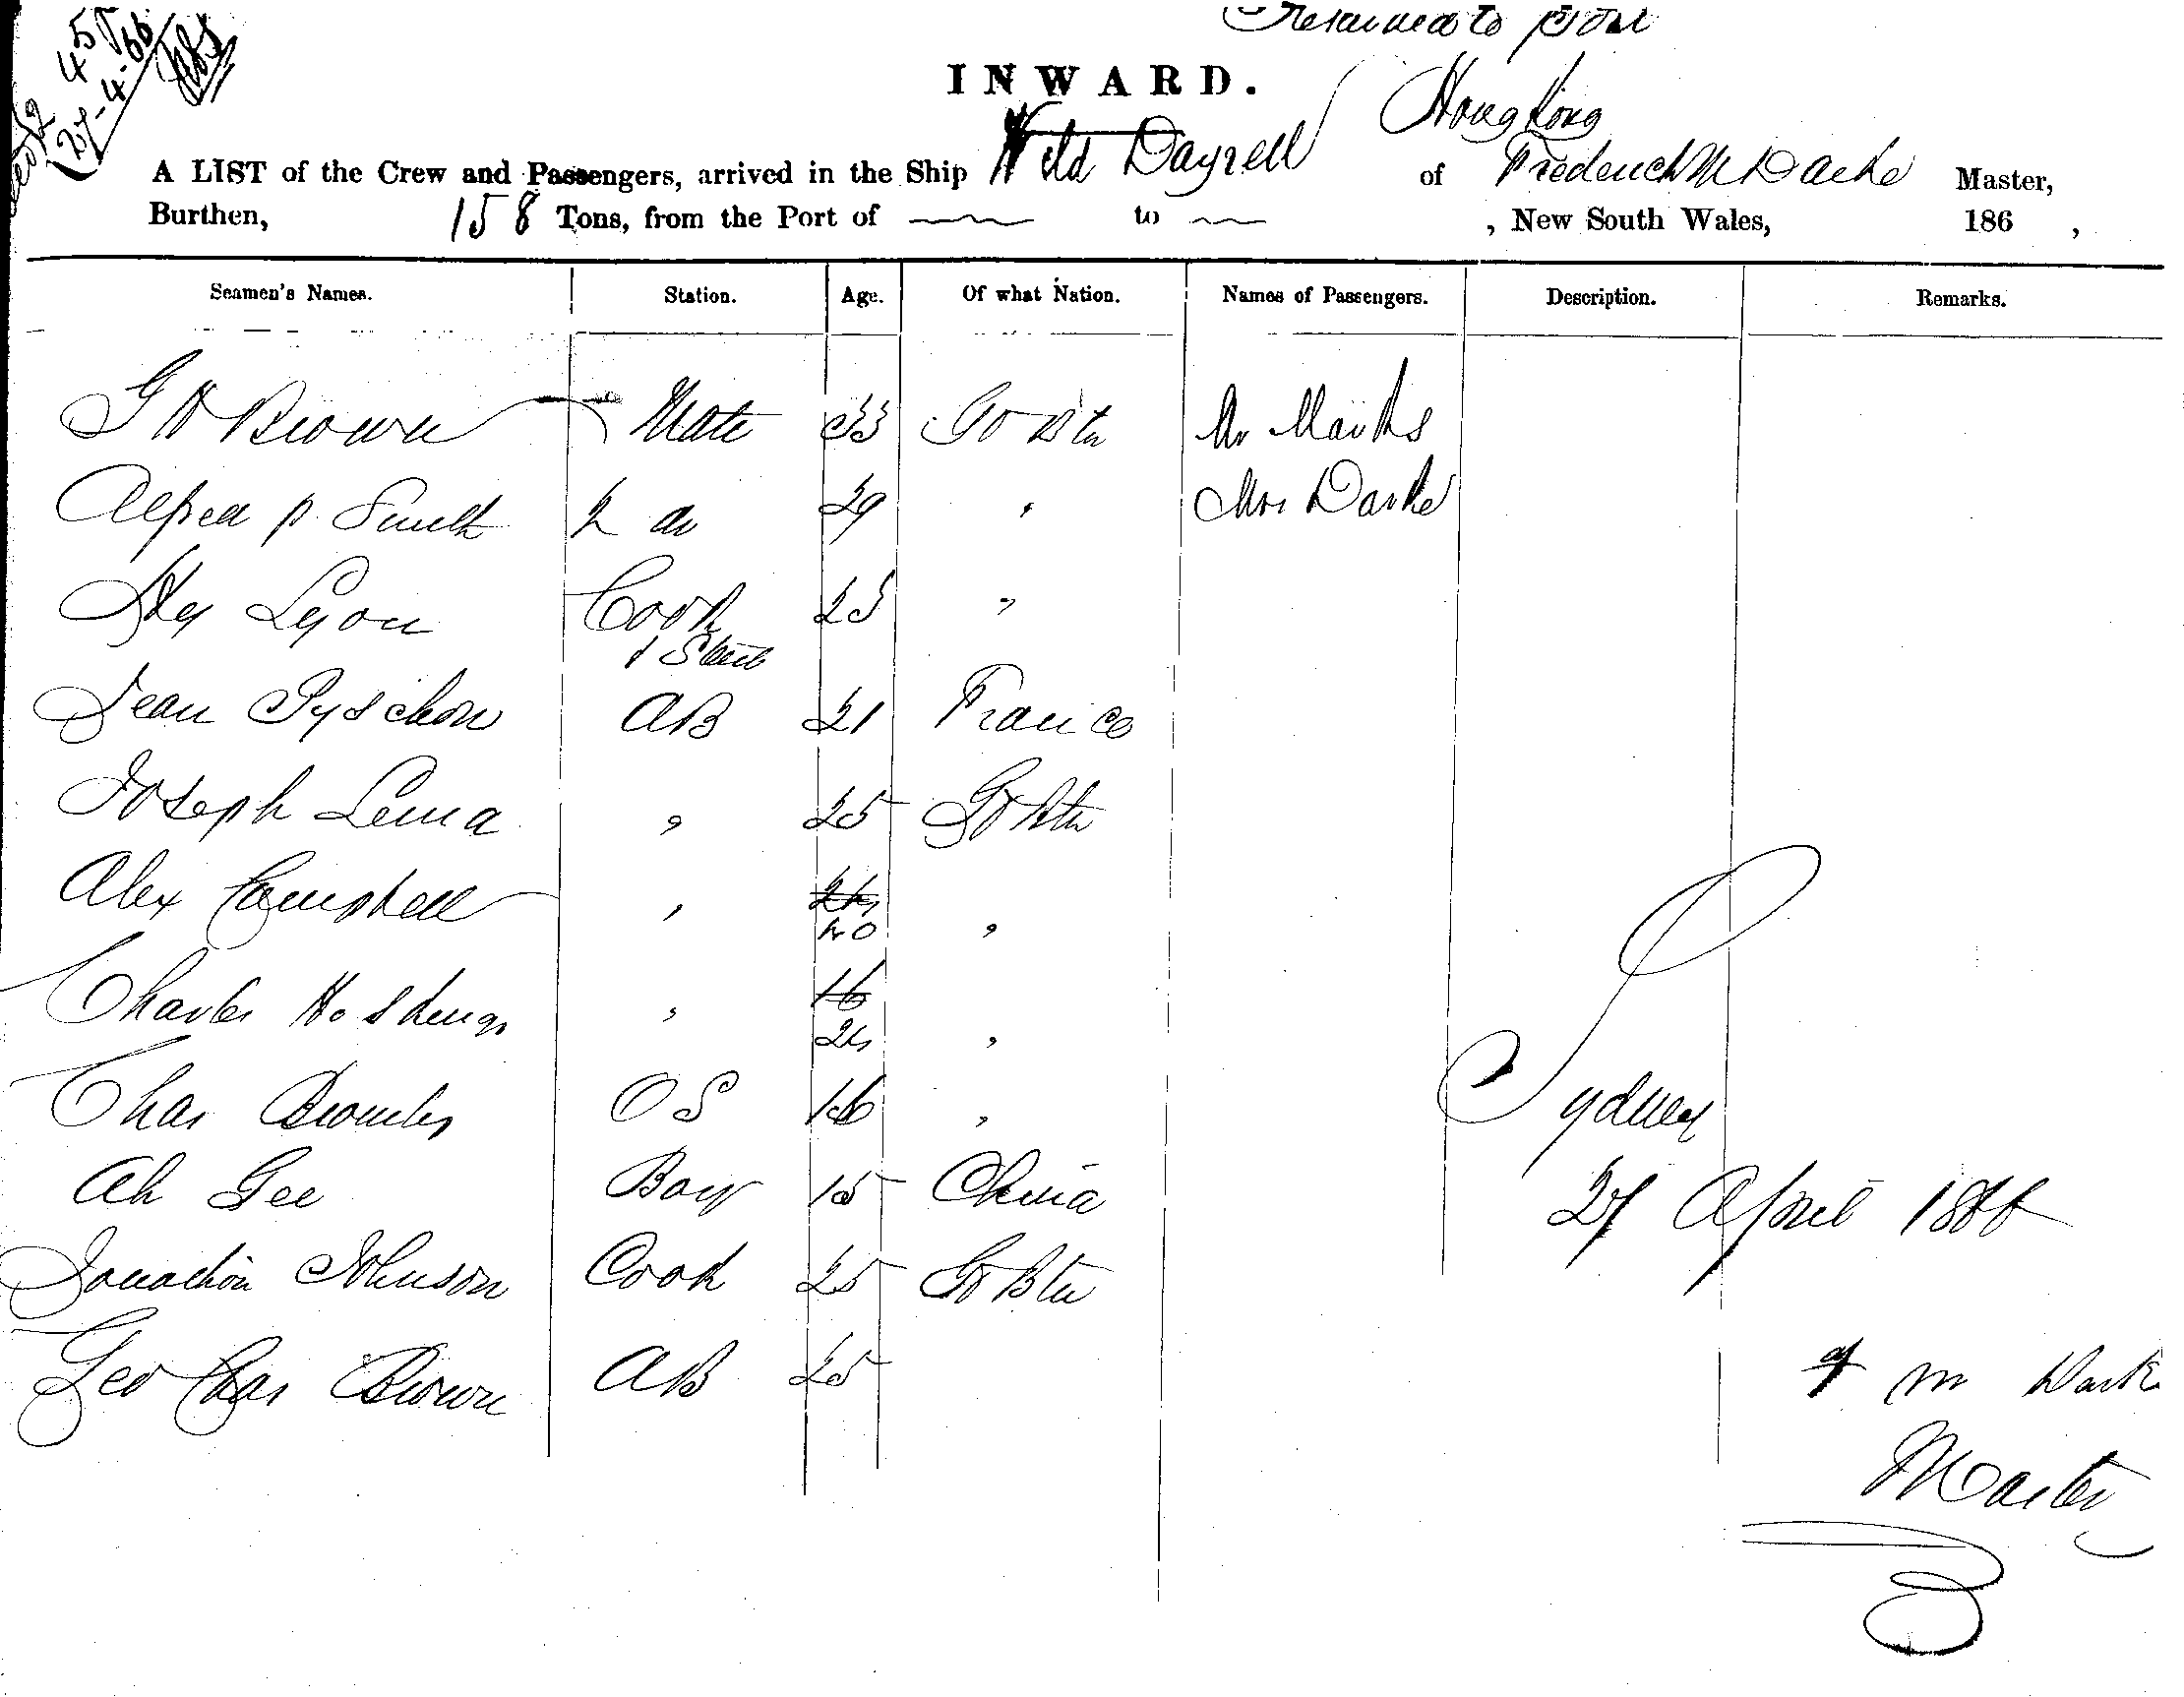 45
27-4-66
Returned to port
INWARD.
A LIST of the Crew and Passengers, arrived in the Ship Wild Dayrell of Hong Kong Frederick M Darke Master,
Burthen, 158 Tons, from the Port of ~ to ~ , New South Wales, 186 ,
Seamen's Names. Station. Age. Of what Nation. Names of Passengers. Description. Remarks.
G H Brown Mate 33 Gt Btn Mr Marks
Alfred P. Smith 2 do 29 " Mrs Darke
Hy Lyon Cook 25 "
& Stew
Jean Pyschon AB 21 France
Joseph Lema " 25 Gt Btn
Alex Campbell " 24
40 "
Charles Hoskings " 16
24 "
Chas OS 16 "
Ah Gee Boy 15 China
Jonathon Johnson Cook 25 Gt Btn
Geo Chas Brown AB 25
Sydney
27 April 1866
F M Darke
Master